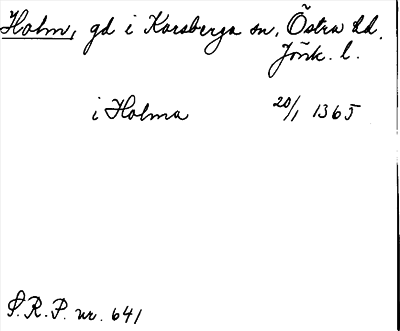 Holm, gd i Korsberga sn, Östra hd.
Jönk. l.
i Holma 20/1 1365
S.R.P. nr. 641